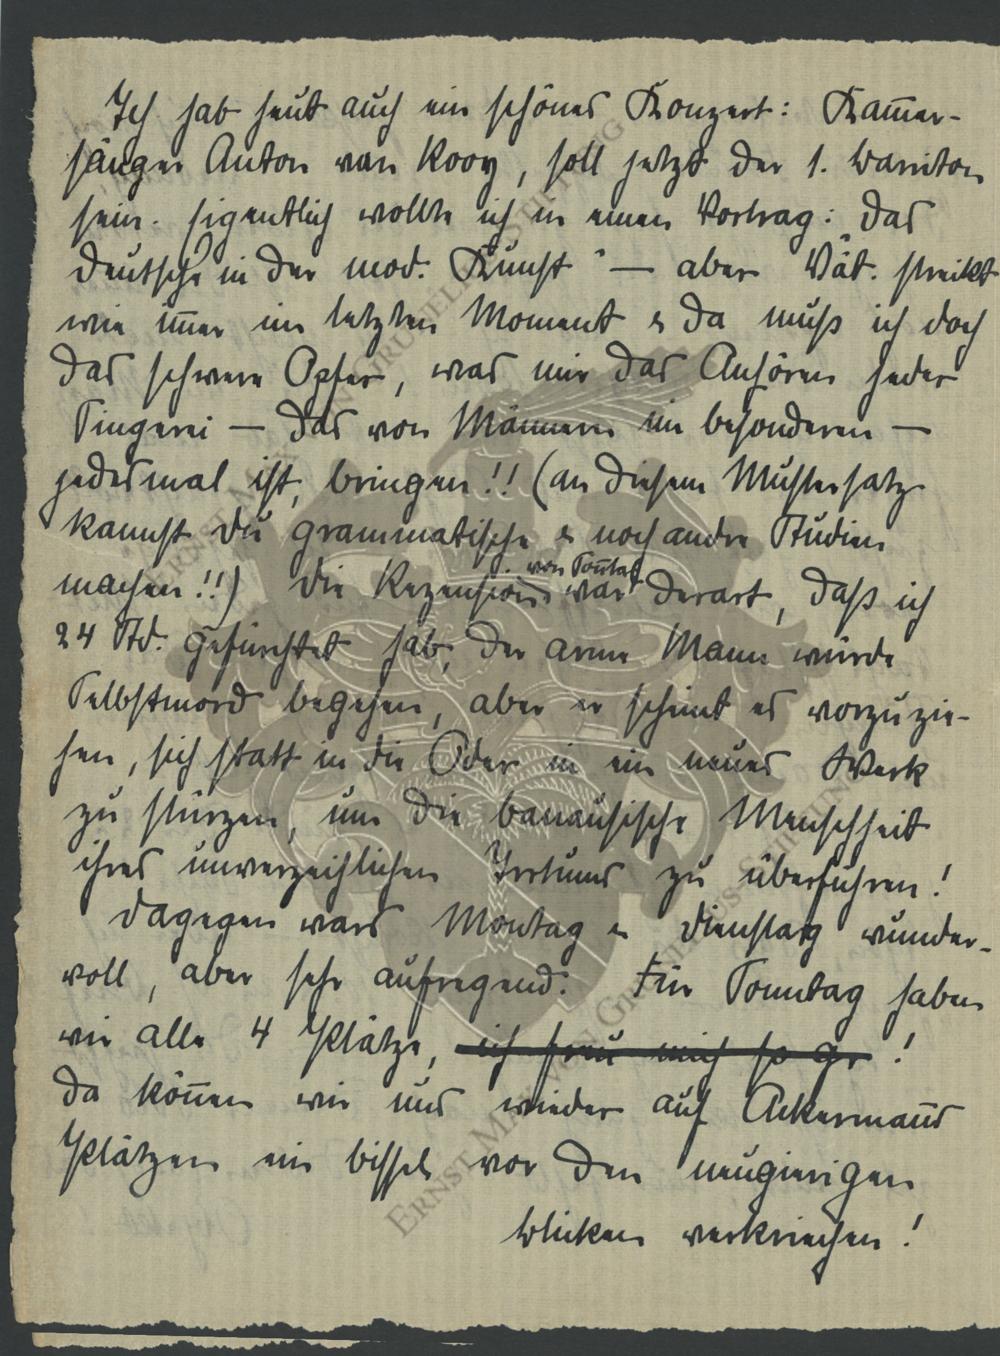 Ich hab heut auch ein schönes Konzert: Kam̄er-
sänger Anton van Rooy, soll jetzt der 1. Bariton
sein. Eigentlich wollte ich in einen Vortrag: „Das
Deutsche in der mod. Kunst“ — aber Vät. streikt
wie im̄er im letzten Moment & da muß ich doch
das schwere Opfer, was mir das Anhören jeder
Singerei — das von Männern im besonderen —
jedesmal ist, bringen!! (an diesem Mustersatz
kannst Du grammatische & noch andre Studien
machen!!) Die Rezension von Son̄tag war derart, daß ich
24 Std. gefürchtet hab, der arme Mann würde
Selbstmord begehen, aber er scheint es vorzuzie-
hen, sich statt in die Oder in ein neues Werk
zu stürzen, um die banausische Menschheit
ihres unverzeihlichen Irrtums zu überführen!
Dagegen wars Montag & Dienstag wunder-
voll, aber sehr aufregend. Für Sonntag haben
wir alle 4 Plätze, ich freu mich so gr !
Da kön̄en wir uns wieder auf Ackerman̄s
Plätzen ein bissel vor den neugierigen
Blicken verkriechen!
ERNST MORITZ VON GRIMM